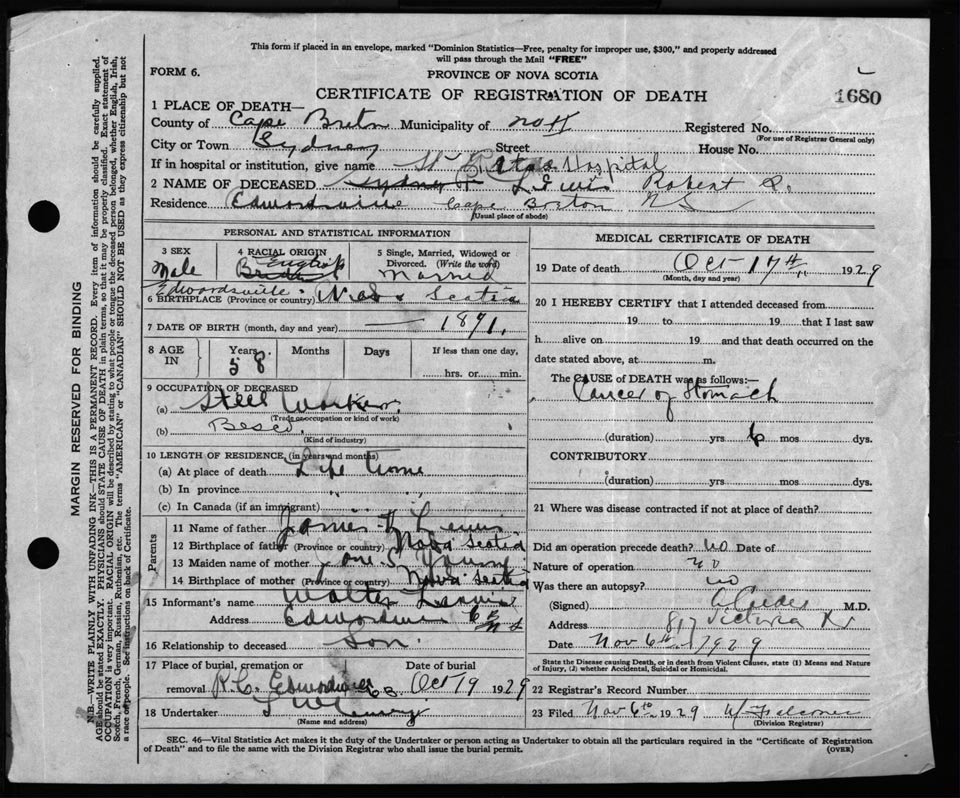 This form if placed in an envelope, marked "Dominion Statistics—Free, penalty for improper use, $300," and properly addressed
will pass through the Mail "FREE"
FORM 6.
PROVINCE OF NOVA SCOTIA
CERTIFICATE OF REGISTRATION OF DEATH
1680
1 PLACE OF DEATH—
County of Cape Breton Municipality of Registered No.
(For use of Registrar General only)
City or Town Sydney Street House No.
If in hospital or institution, give name St Ritas Hospital
2 NAME OF DECEASED Lewis Robert
Residence Edwardsville Cape Breton N S
(Usual place of abode)
PERSONAL AND STATISTICAL INFORMATION
3 SEX 4 RACIAL ORIGIN 5 Single, Married, Widowed or Divorced. (Write the word)
Male English Married
Edwardsville
6 BIRTHPLACE (Province or country) Nova Scotia
7 DATE OF BIRTH (month, day and year) — 1871.
8 AGE IN Years Months Days If less than one day,
58
hrs. or min.
9 OCCUPATION OF DECEASED
(a) Steel Worker
(Trade or occupation or kind of work)
(b) Besco
(Kind of industry)
10 LENGTH OF RESIDENCE (in years and months)
(a) At place of death Life Time
(b) In province " "
(c) In Canada (if an immigrant)
Parents
11 Name of father James Lewis
12 Birthplace of father (Province or country) Nova Scotia
13 Maiden name of mother Young
14 Birthplace of mother (Province or country) Nova Scotia
15 Informant's name Walter Lewis
Address Edwardsville CB NS
16 Relationship to deceased Son
17 Place of burial, cremation or Date of burial
removal R.C. Edwardsville C.B. Oct 19 1929
18 Undertaker
(Name and address)
MEDICAL CERTIFICATE OF DEATH
19 Date of death Oct 17th, 1929
(Month, day and year)
20 I HEREBY CERTIFY that I attended deceased from
19 to 19 that I last saw
h alive on 19 and that death occurred on the
date stated above, at m.
The CAUSE of DEATH was as follows:—
Cancer of Stomach
(duration) yrs 6 mos dys.
CONTRIBUTORY
(duration) yrs. mos. dys.
21 Where was disease contracted if not at place of death?
Did an operation precede death? no Date of
Nature of operation no
Was there an autopsy? no
(Signed) M.D.
Address Victoria Rd
Date Nov 6th 1929
State the Disease causing Death, or in death from Violent Causes, state (1) Means and Nature
of Injury, (2) whether Accidental, Suicidal or Homicidal.
22 Registrar's Record Number
23 Filed Nov 6th 1929 W Falconer
(Division Registrar)
SEC. 46—Vital Statistics Act makes it the duty of the Undertaker or person acting as Undertaker to obtain all the particulars required in the "Certificate of Registration
of Death" and to file the same with the Division Registrar who shall issue the burial permit. (OVER)
MARGIN RESERVED FOR BINDING
N.B.—WRITE PLAINLY WITH UNFADING INK—THIS IS A PERMANENT RECORD. Every item of information should be carefully supplied.
AGE should be stated EXACTLY. PHYSICIANS should STATE CAUSE OF DEATH in plain terms, so that it may be properly classified. Exact statement of
OCCUPATION is very important. RACIAL ORIGIN will be described by stating to what people or tongue the deceased person belonged, whether English, Irish,
Scotch, French, German, Russian, Ruthenian, etc. The terms "AMERICAN" or "CANADIAN" SHOULD NOT BE USED as they express citizenship but not
a race or people. See instructions on back of Certificate.